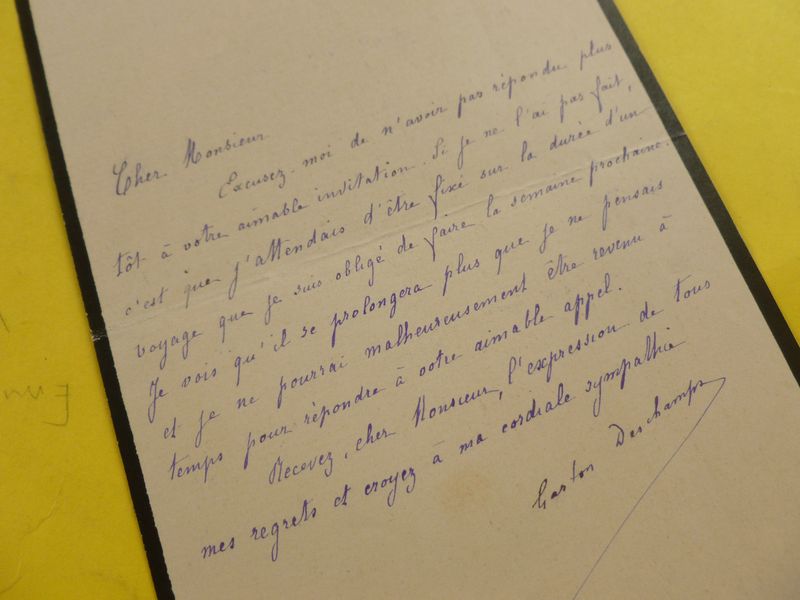 Cher Monsieur
Excusez-moi de n'avoir pas répondu plus
tôt à votre aimable invitation. Si je ne l'ai pas fait,
c'est que j'attendais d'être fixé sur la durée d'un
voyage que je suis obligé de faire la semaine prochaine.
Je vois qu'il se prolongera plus que je ne pensais
et je ne pourrai malheureusement être revenu à
temps pour répondre à votre aimable appel.
Recevez, cher Monsieur, l'expression de tous
mes regrets et croyez à ma cordiale sympathie
Gaston Deschamps